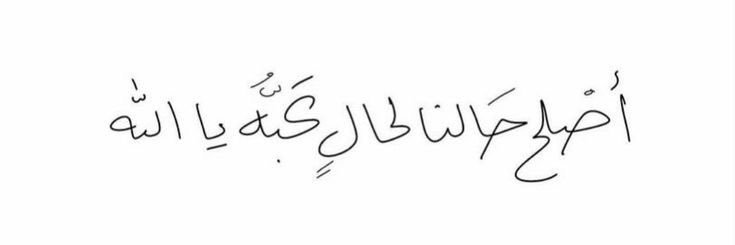 أصْلح حَالنا لحالٍ تَحبُّه يا الله